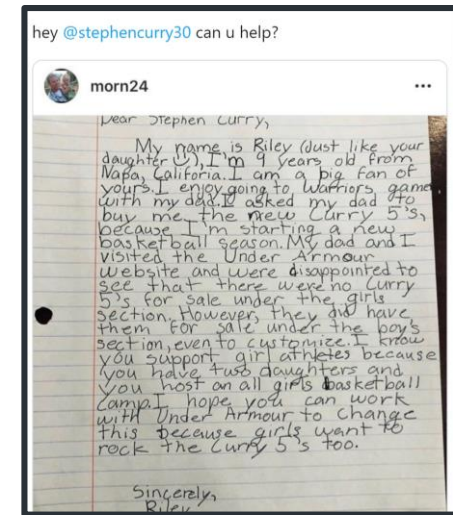 hey @stephencurry30 can u help?
morn24
Dear Stephen Curry,
My name is Riley (Just like your
daughter ), I'm 9 years old from
Napa, Califoria. I am a big fan of
yours. I enjoy going to Warriors game
with my dad. I asked my dad to
buy me the new Curry 5's,
because I'm starting a new
basketball season. My dad and I
visited the Under Armour
website and were disappointed to
see that there were no Curry
5's for sale under the girls
section. However, they did have
them for sale under the boy's
section, even to customize. I know
you support girl athletes because
you have two daughters and
you host an all girls basketball
camp. I hope you can work
with Under Armour to change
this because girls want to
rock the Curry 5's too.
Sincerely,
Riley